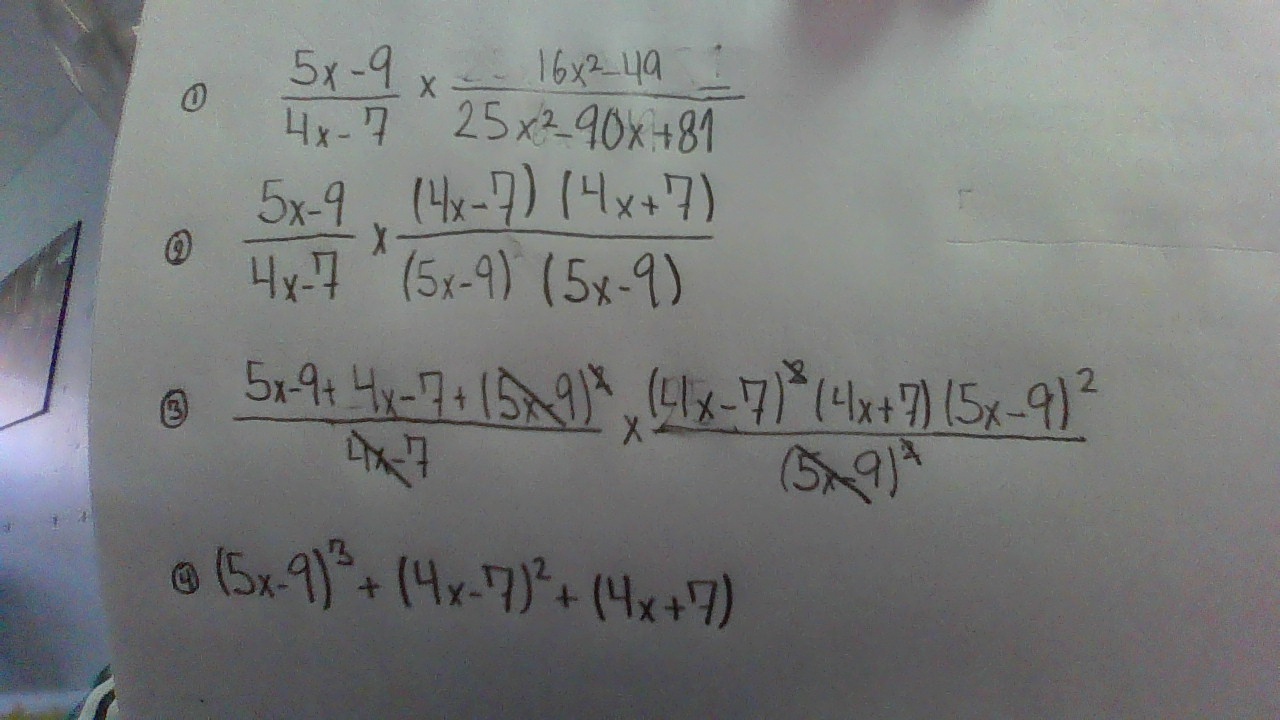 ① 5x-9/4x-7 × 16x²-49/25x²-90x+81 =
② 5x-9/4x-7 × (4x-7) (4x+7)/(5x-9) (5x-9)
③ 5x-9+4x-7+(5x-9)²/4x-7 × (4x-7)³(4x+7)(5x-9)²/(5x-9)²
④ (5x-9)³+(4x-7)²+(4x+7)